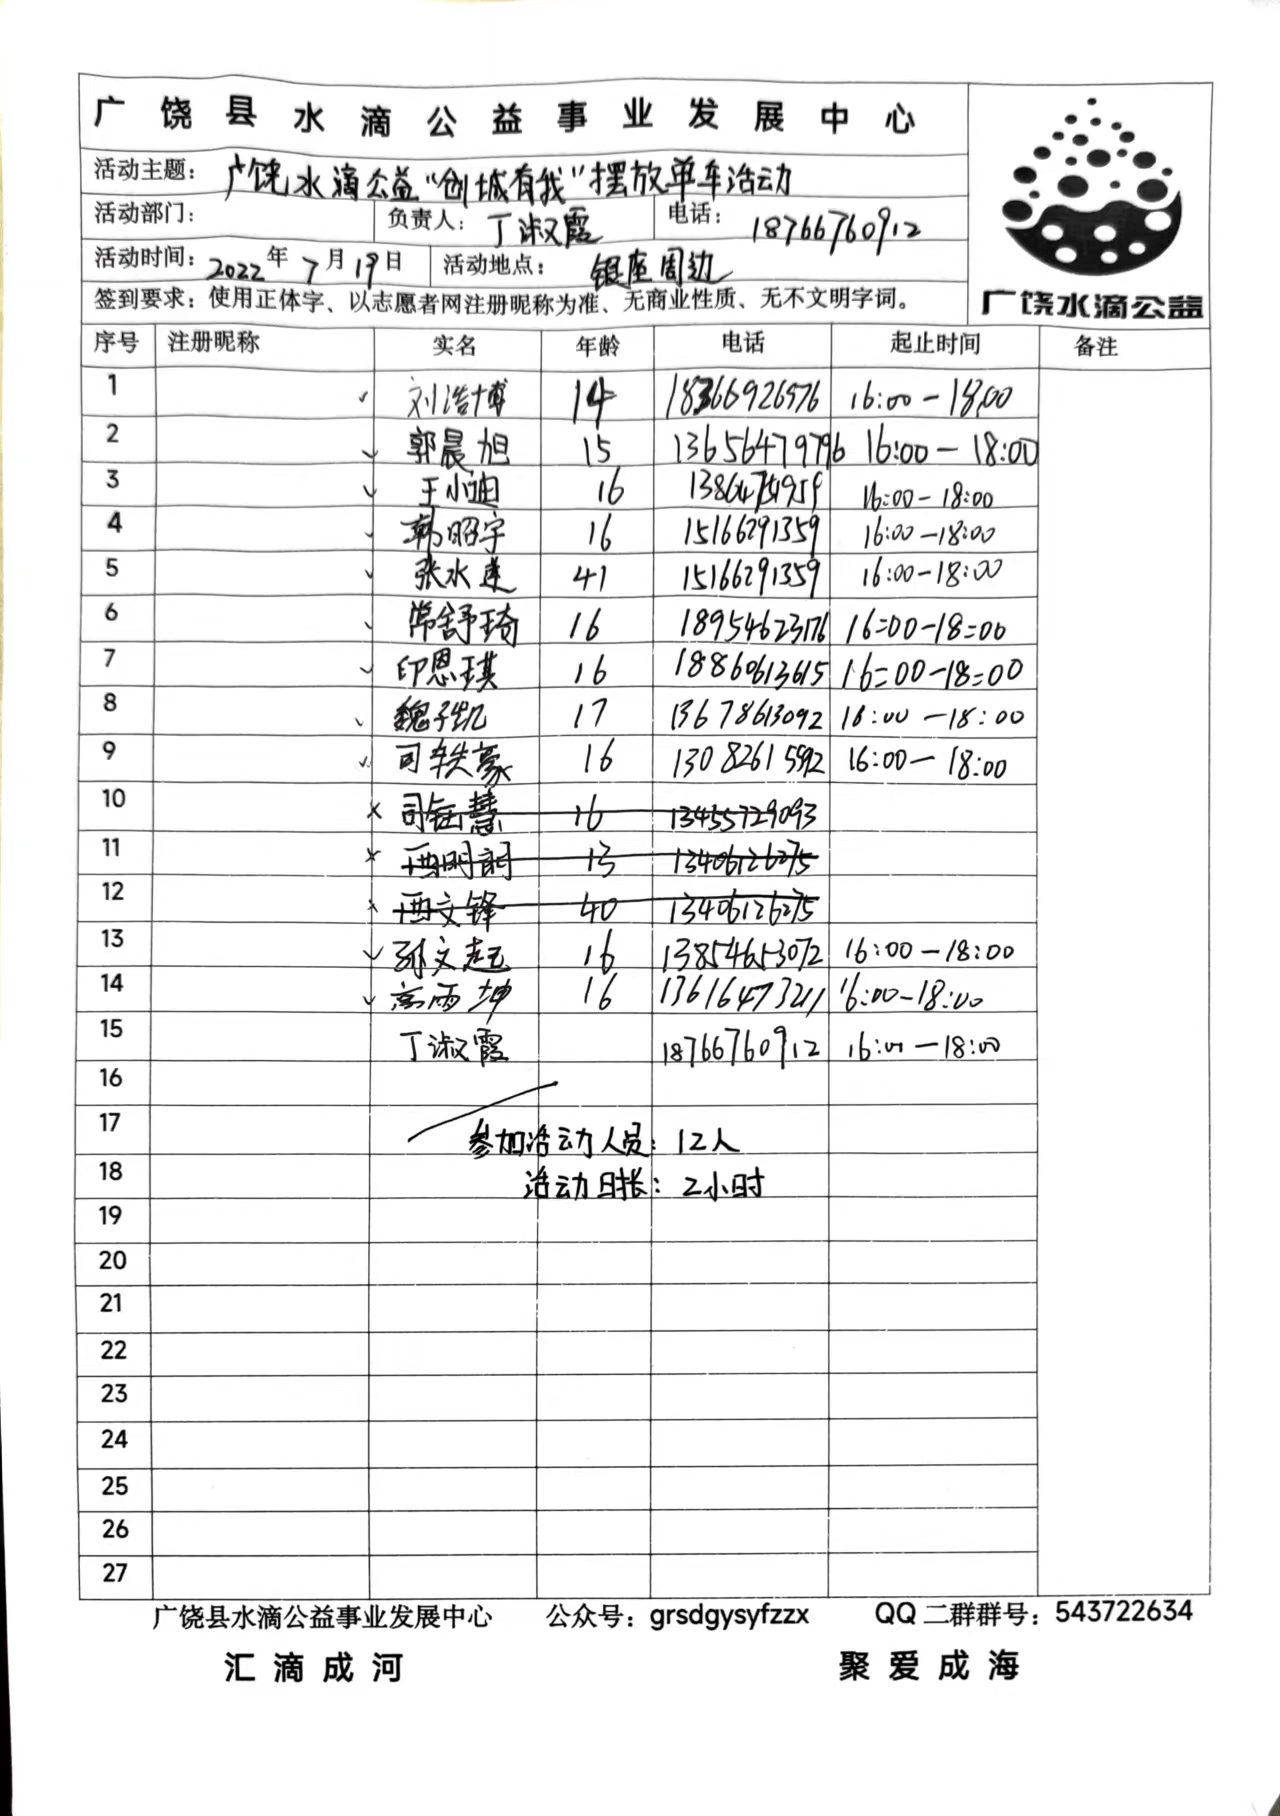 广饶县水滴公益事业发展中心
活动主题：广饶水滴公益“创城有我”摆放单车活动
活动部门： 负责人：丁淑霞 电话：18766760912
活动时间：2022年7月19日 活动地点：银座周边
签到要求：使用正体字、以志愿者网注册昵称为准、无商业性质、无不文明字词。
广饶水滴公益
序号 注册昵称 实名 年龄 电话 起止时间 备注
1 ✓ 刘浩博 14 18366926976 16:00-18:00
2 ✓ 郭晨旭 15 13656479796 16:00-18:00
3 ✓ 王小迪 16 16:00-18:00
4 ✓ 韩昭宇 16 15166291359 16:00-18:00
5 ✓ 张水莲 41 15166291359 16:00-18:00
6 ✓ 常舒琦 16 18954623176 16:00-18:00
7 ✓ 印恩琪 16 18860613615 16:00-18:00
8 ✓ 魏子凯 17 13678613092 16:00-18:00
9 ✓ 司轶豪 16 13082615592 16:00-18:00
10 × 司钰慧 16 13455729093
11 × 13 13406126275
12 × 西文锋 40 13406126275
13 ✓ 孙文起 16 13854653072 16:00-18:00
14 ✓ 高雨坤 16 13616473211 16:00-18:00
15 丁淑霞 18766760912 16:00-18:00
16
17 参加活动人员：12人
18 活动时长：2小时
19
20
21
22
23
24
25
26
27
广饶县水滴公益事业发展中心 公众号：grsdgysyfzzx QQ二群群号：543722634
汇滴成河 聚爱成海